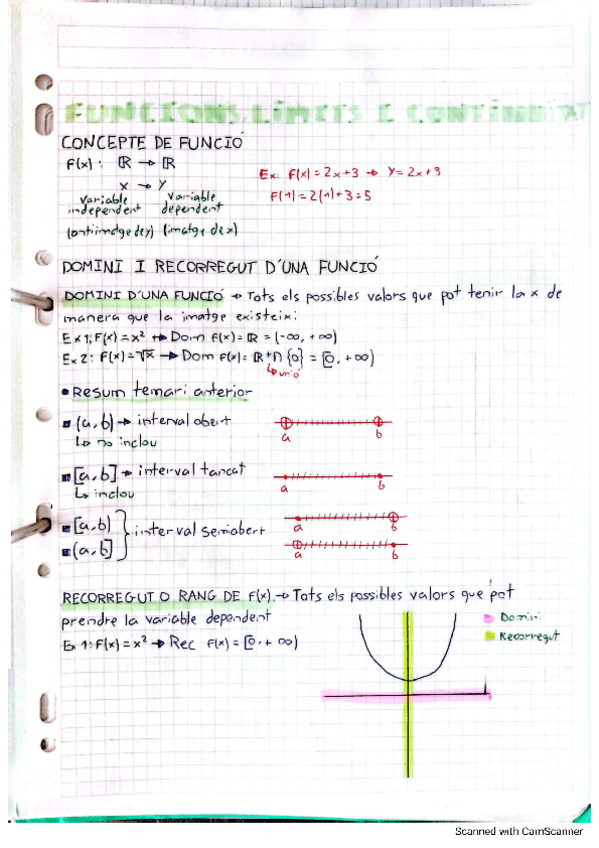 FUNCIONS, LÍMITS I CONTINUÏTAT
CONCEPTE DE FUNCIÓ
F(x): ℝ → ℝ
x → y
variable independent
variable dependent
(antiimatge de y) (imatge de x)
Ex: F(x) = 2x+3 → Y = 2x+3
F(1) = 2(1)+3 = 5
DOMINI I RECORREGUT D'UNA FUNCIÓ
DOMINI D'UNA FUNCIÓ → Tots els possibles valors que pot tenir la x de
manera que la imatge existeix:
Ex 1: F(x) = x² → Dom f(x) = ℝ = (-∞, +∞)
Ex 2: F(x) = √x → Dom F(x) = ℝ⁺∩{0} = [0, +∞)
↳ unió
• Resum temari anterior
(a, b) → interval obert
↳ no inclou
a b
[a, b] → interval tancat
↳ inclou
a b
[a, b)
(a, b]
} interval semiobert
a b
a b
RECORREGUT O RANG DE F(x). → Tots els possibles valors que pot
prendre la variable dependent
Ex 1: F(x) = x² → Rec F(x) = [0, +∞)
Domini
Recorregut
Scanned with CamScanner